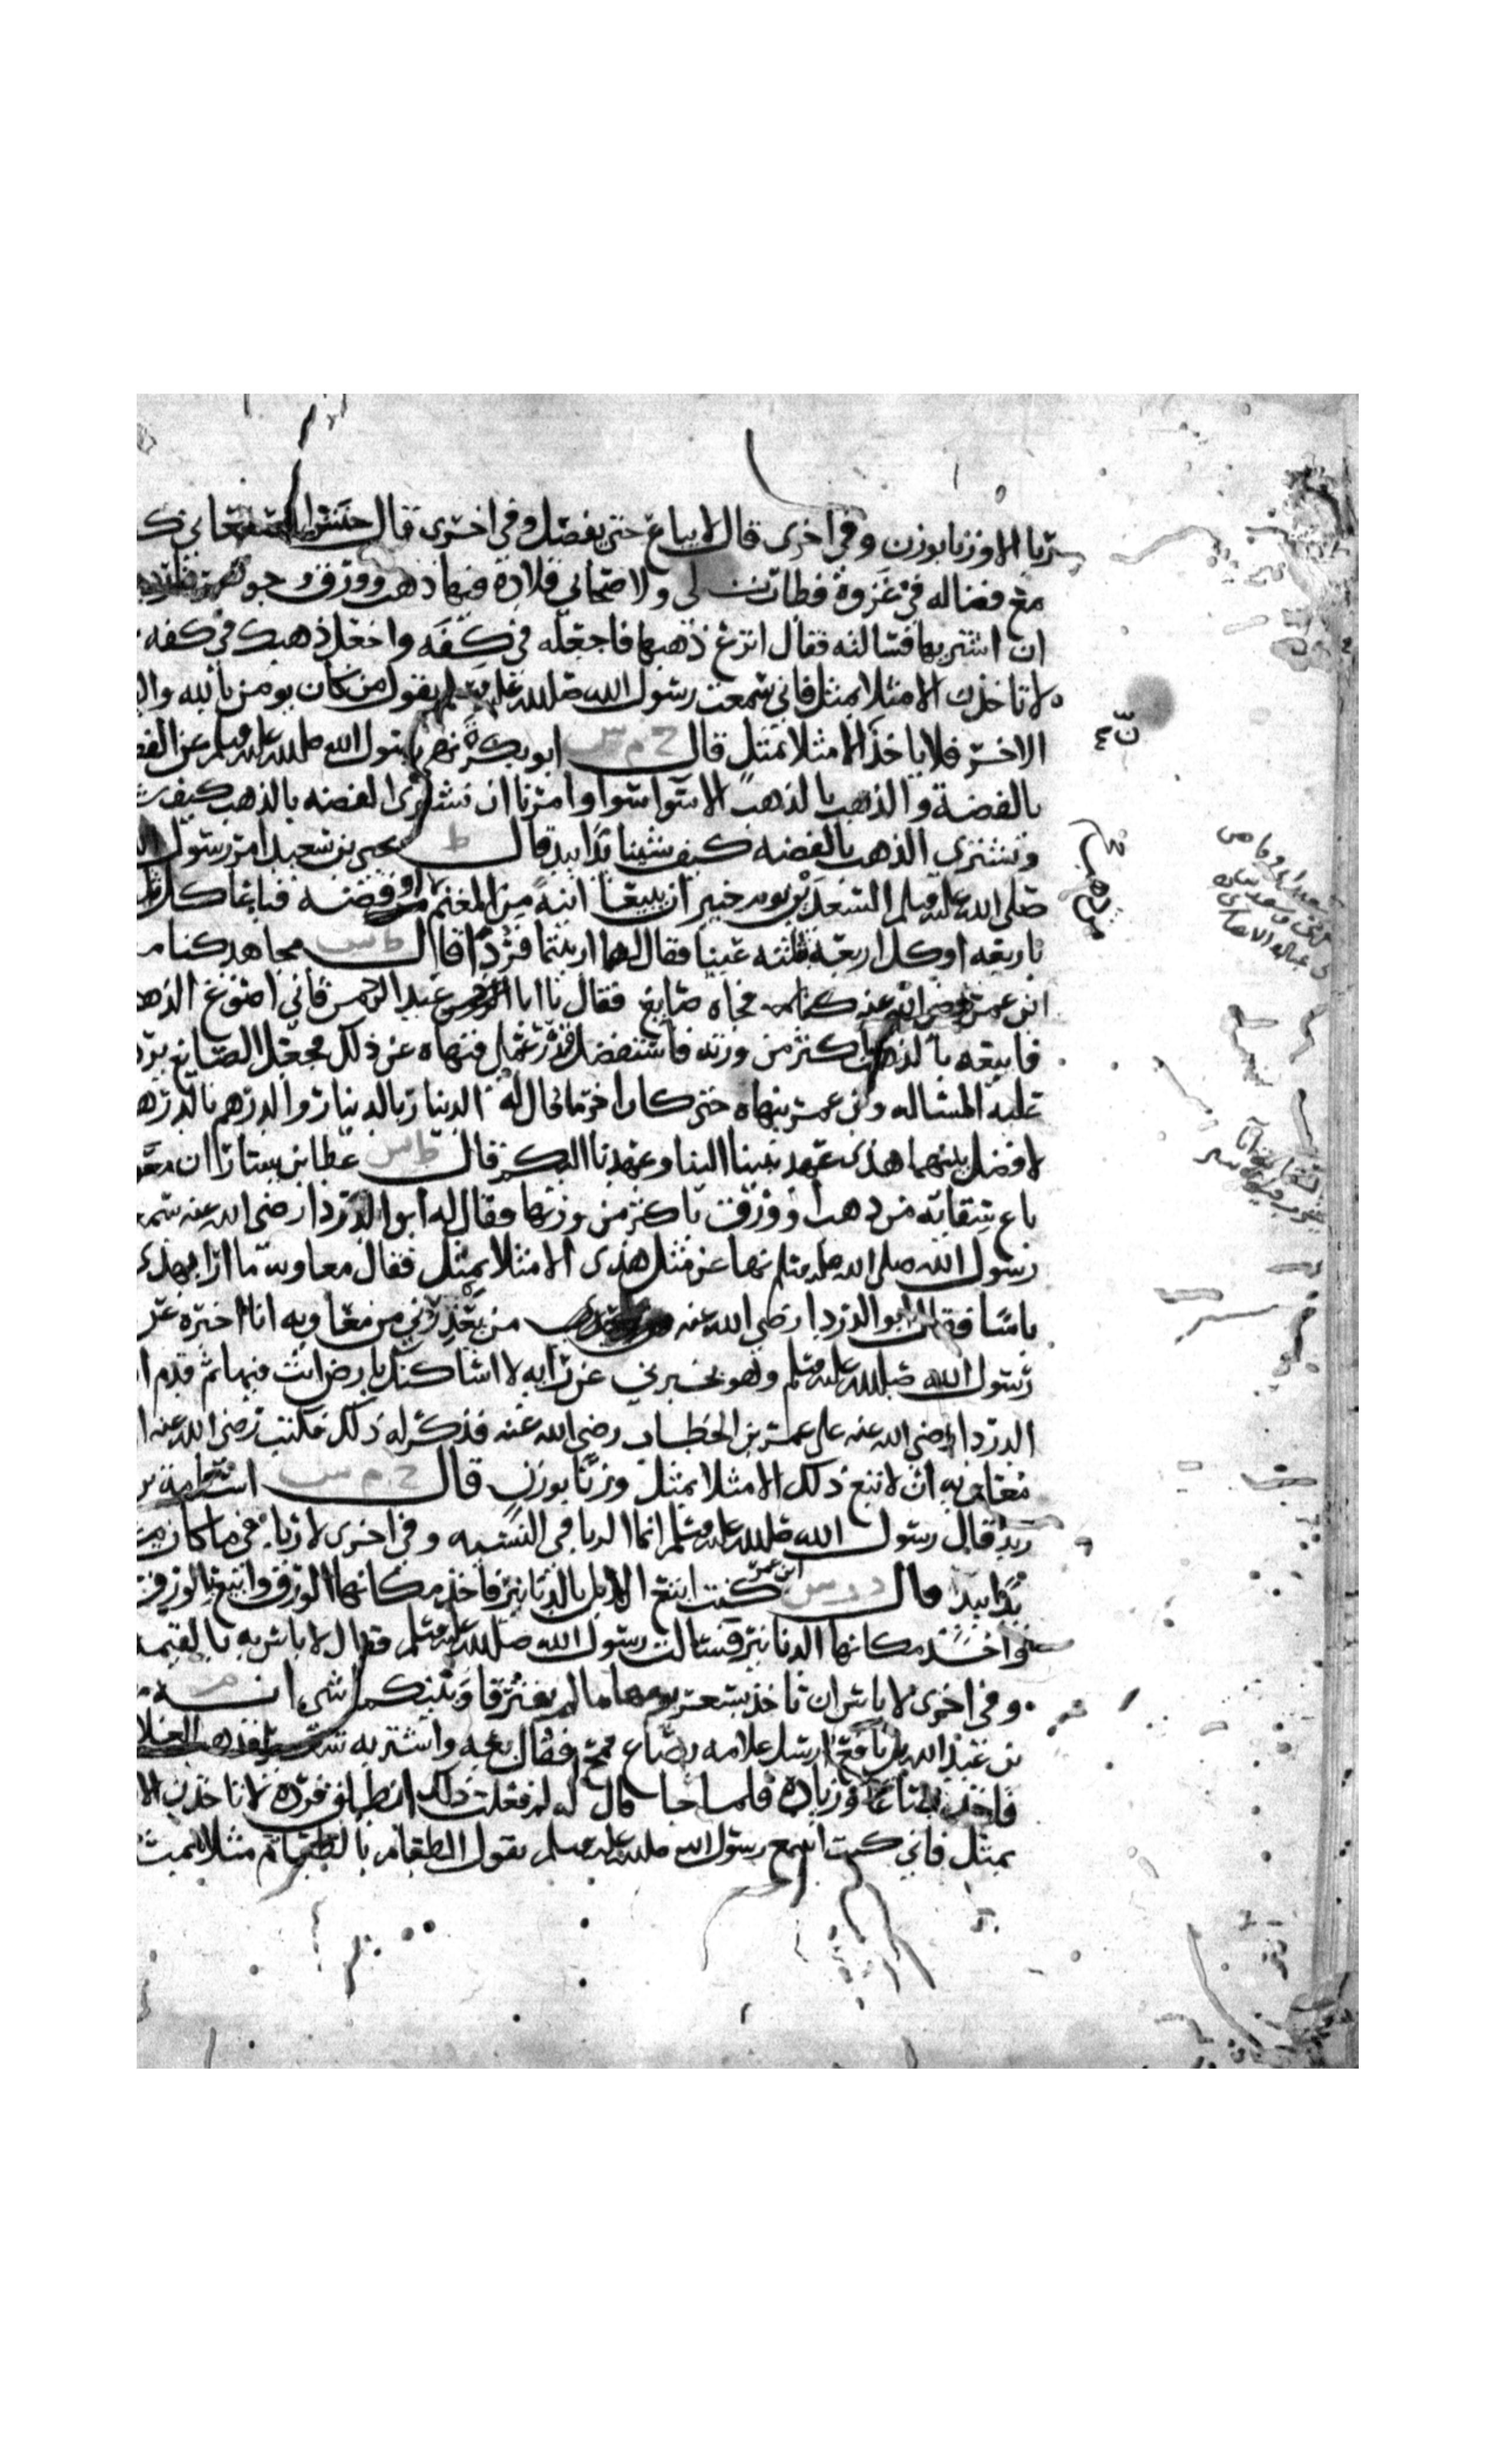 الا وزنا بوزن وفي اخرى قال لا يباع حتى يفصل وفي اخرى قال حنش الصنعاني ك
مع فضاله في غزوة فطارت لى ولاصحابي قلادة فيها ذهب وورق وجوهر
ان اشتريها فسالته فقال انزع ذهبها فاجعله في كفه واجعل ذهبك في كفه
لا تاخذن الا مثلا بمثل فاني سمعت رسول الله صلى الله عليه وسلم يقول من كان يومن بالله وال
الاخر فلا ياخذ الا مثلا بمثل قال خ م س ابو بكرة نهى رسول الله صلى الله عليه وسلم عن الفض
بالفضة والذهب بالذهب الا سوا سوا وامرنا ان نشتري الفضه بالذهب كيف
ونشتري الذهب بالفضه كيف شينا يدا بيد قال ط يحيى بن سعيد امر رسول
صلى الله عليه وسلم السعدين يوم خيبر ان يبيعا انية من المغنم من او فضه فباعا كل
باربعه او كل اربعه بثلثه عينا فقال لهما اربيتما فردا قال ط س مجاهد كنا
ابن عمر رضي الله عنه فجاه صايغ فقال يا ابا عبد الرحمن فاني اصوغ الذهب
فابيعه بالذهب باكثر من وزنه فاستفضل قدر عملي فنهاه عن ذلك فجعل الصايغ يرد
عليه المساله وابن عمر ينهاه حتى كان اخر ما قال له الدينار بالدينار والدرهم بالدره
لا فضل بينهما هذى عهد نبينا الينا وعهدنا اليكم قال ط س عطا بن يسار ان مع
باع سقاية من ذهب او ورق باكثر من وزنها فقال له ابو الدردا رضي الله عنه سم
رسول الله صلى الله عليه وسلم نها عن مثل هذى الا مثلا بمثل فقال معاويه ما ارا بهذى
باسا فقال ابو الدردا رضي الله عنه من يعذرني من معاويه انا اخبره عن
رسول الله صلى الله عليه وسلم وهو يخبرني عن رايه لا اساكنك بارض انت فيها ثم قدم ا
الدردا رضي الله عنه على عمر بن الخطاب رضي الله عنه فذكر له ذلك فكتب رضي الله عنه ا
معاويه ان لا تبع ذلك الا مثلا بمثل وزنا بوزن قال خ م س اسامة بن
زيد قال رسول الله صلى الله عليه وسلم انما الربا في النسيه وفي اخرى لا ربا في ما كان
يدا بيد قال د ر س ابن عمر كنت ابيع الابل بالدنانير فاخذ مكانها الورق وابيع بالورق
واخذ مكانها الدنانير فسالت رسول الله صلى الله عليه وسلم فقال لا باس به بالقيمه
وفي اخرى لا باس ان تاخذ بسعر يومها ما لم يفترقا وبينكما شي ان م
بن عبد الله بن نافع ارسل غلامه بصاع قمح فقال بعه واشتر به شعيرا فذهب الغلا
فاخذ صاعا وزيادة فلما جا قال له لم فعلت ذلك انطلق فرده لا تاخذن الا
بمثل فاني كنت اسمع رسول الله صلى الله عليه وسلم يقول الطعام بالطعام مثلا بمث